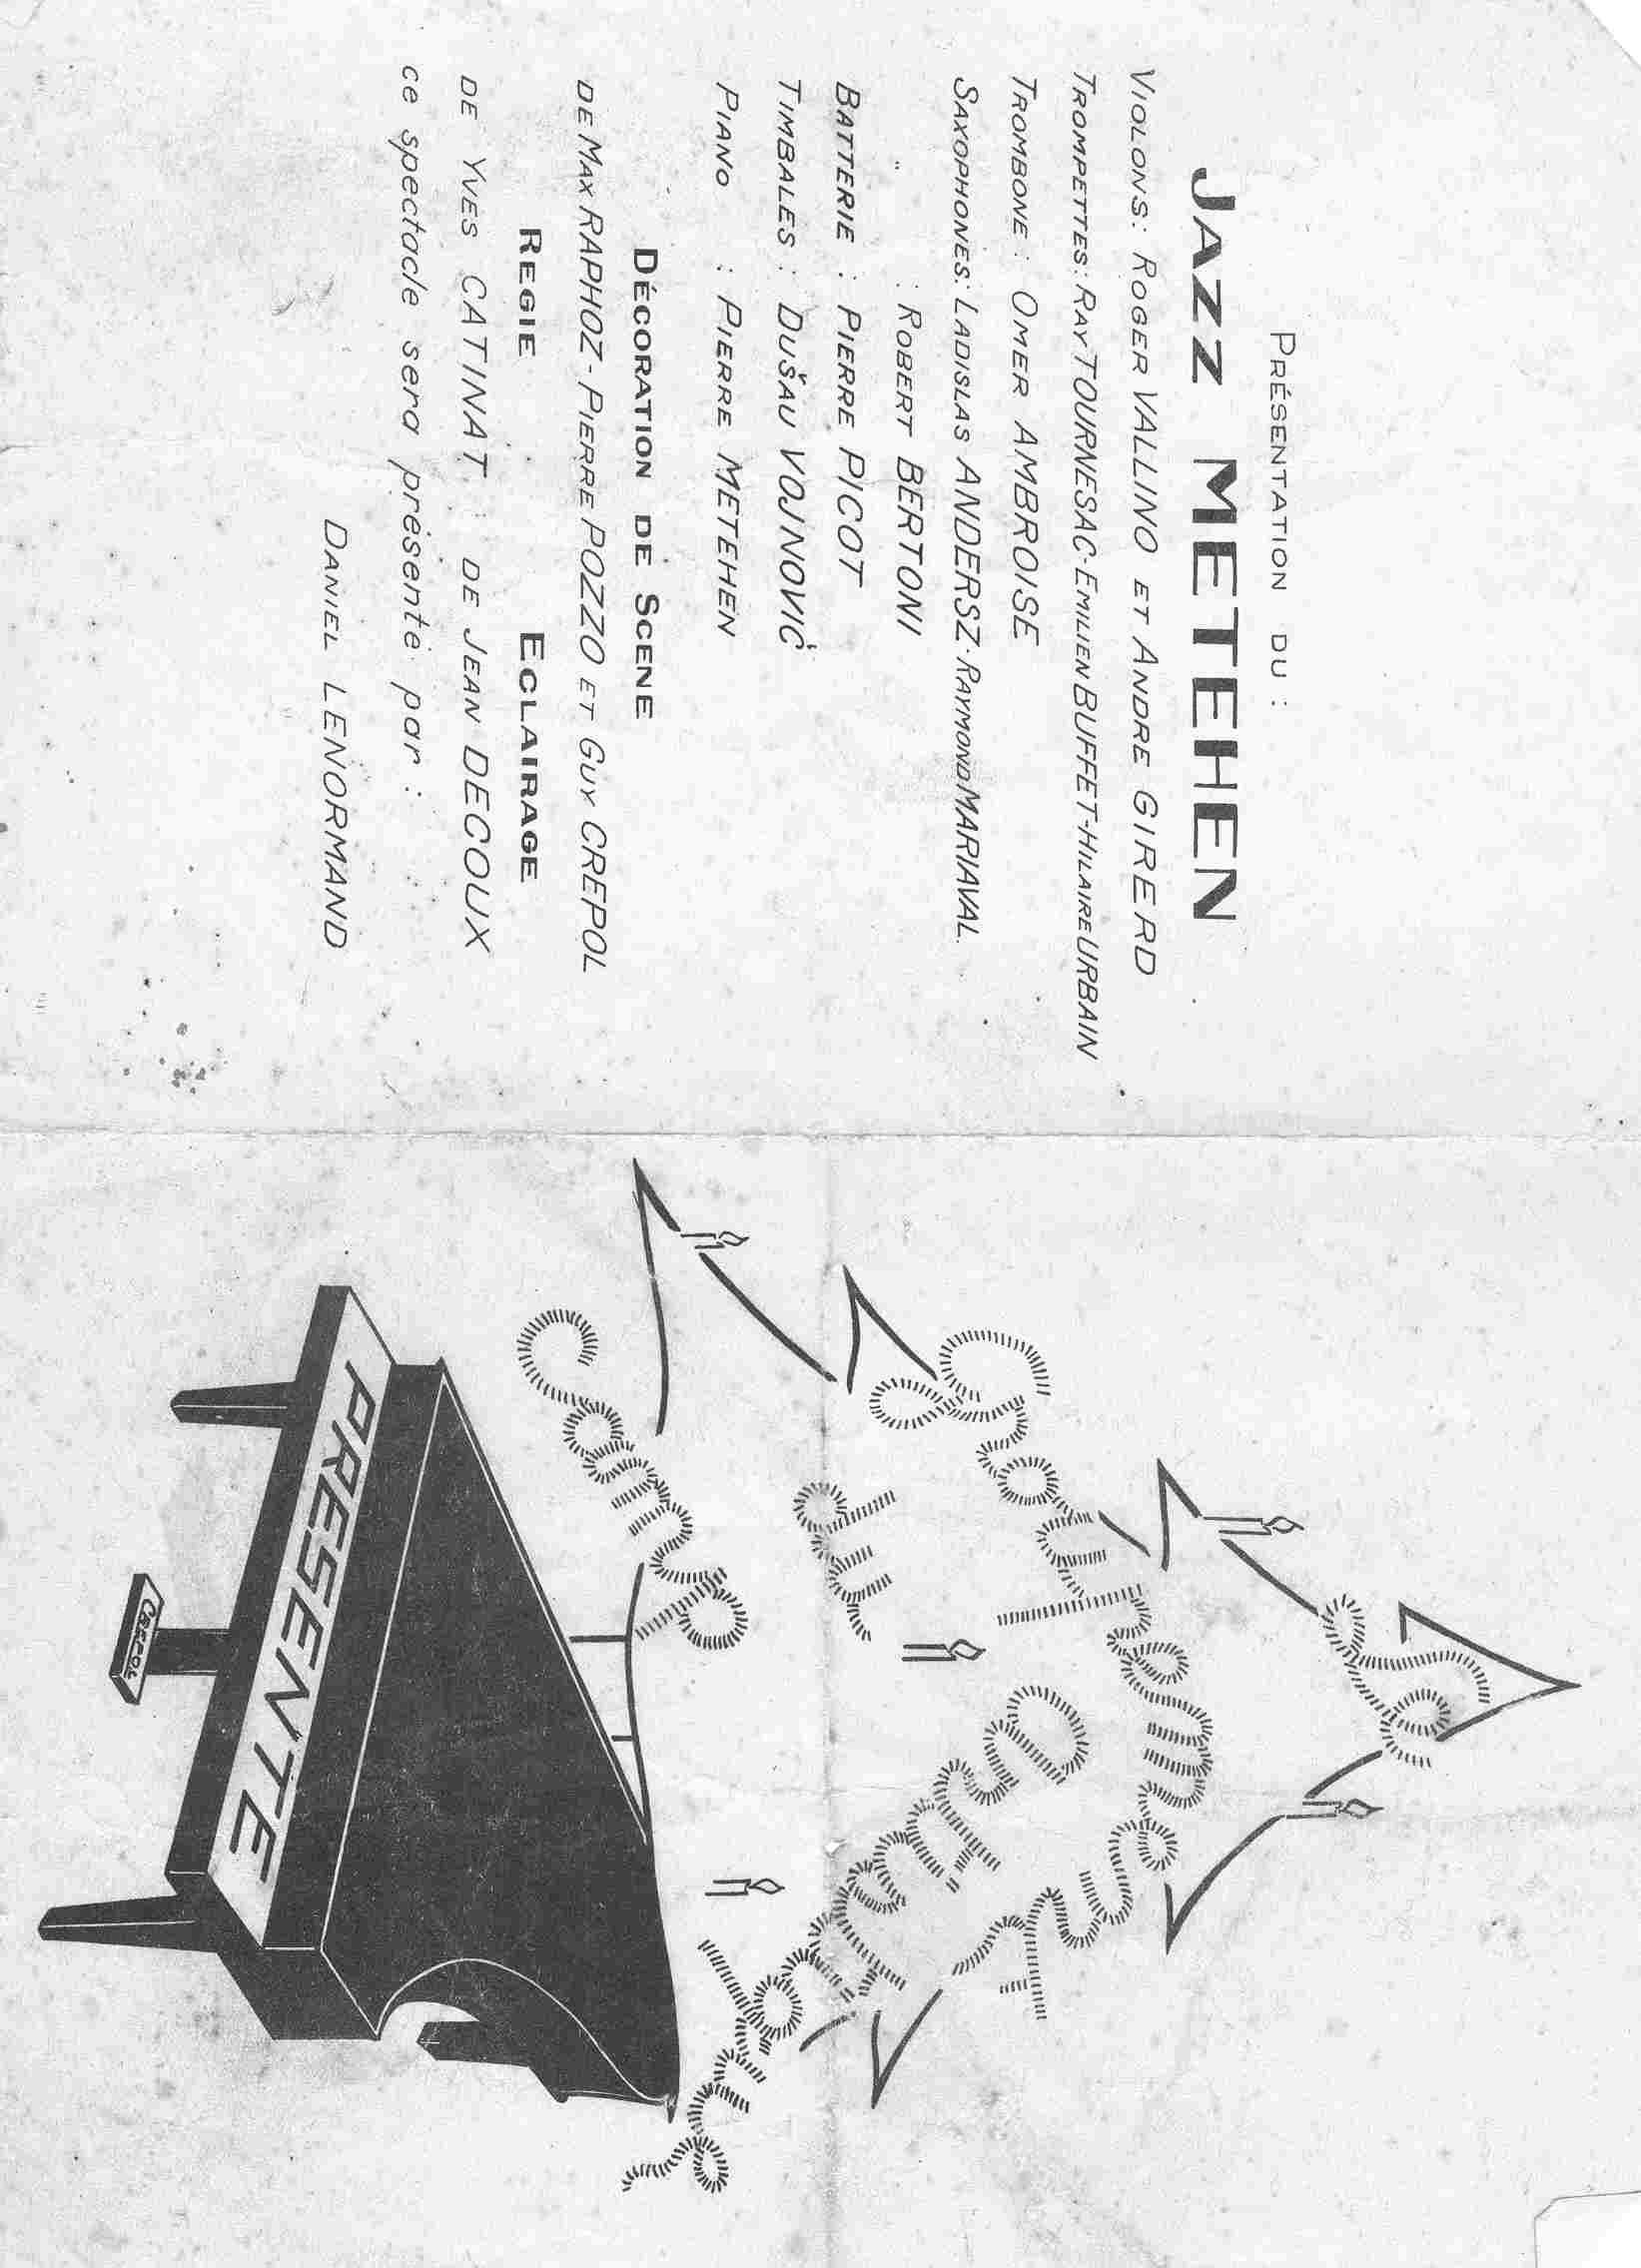 PRÉSENTATION DU :
JAZZ METEHEN
VIOLONS : ROGER VALLINO ET ANDRE GIRERD
TROMPETTES : RAY TOURNESAC - EMILIEN BUFFET - HILAIRE URBAIN
TROMBONE : OMER AMBROISE
SAXOPHONES : LADISLAS ANDERSZ - RAYMOND MARIAVAL
" : ROBERT BERTONI
BATTERIE : PIERRE PICOT
TIMBALES : DUŠAU VOJNOVIĆ
PIANO : PIERRE METEHEN
DÉCORATION DE SCENE
DE MAX RAPHOZ - PIERRE POZZO ET GUY CREPOL
REGIE ECLAIRAGE
DE YVES CATINAT : DE JEAN DECOUX
ce spectacle sera présenté par :
DANIEL LENORMAND
Le
Camp
PRESENTE
CREPOL